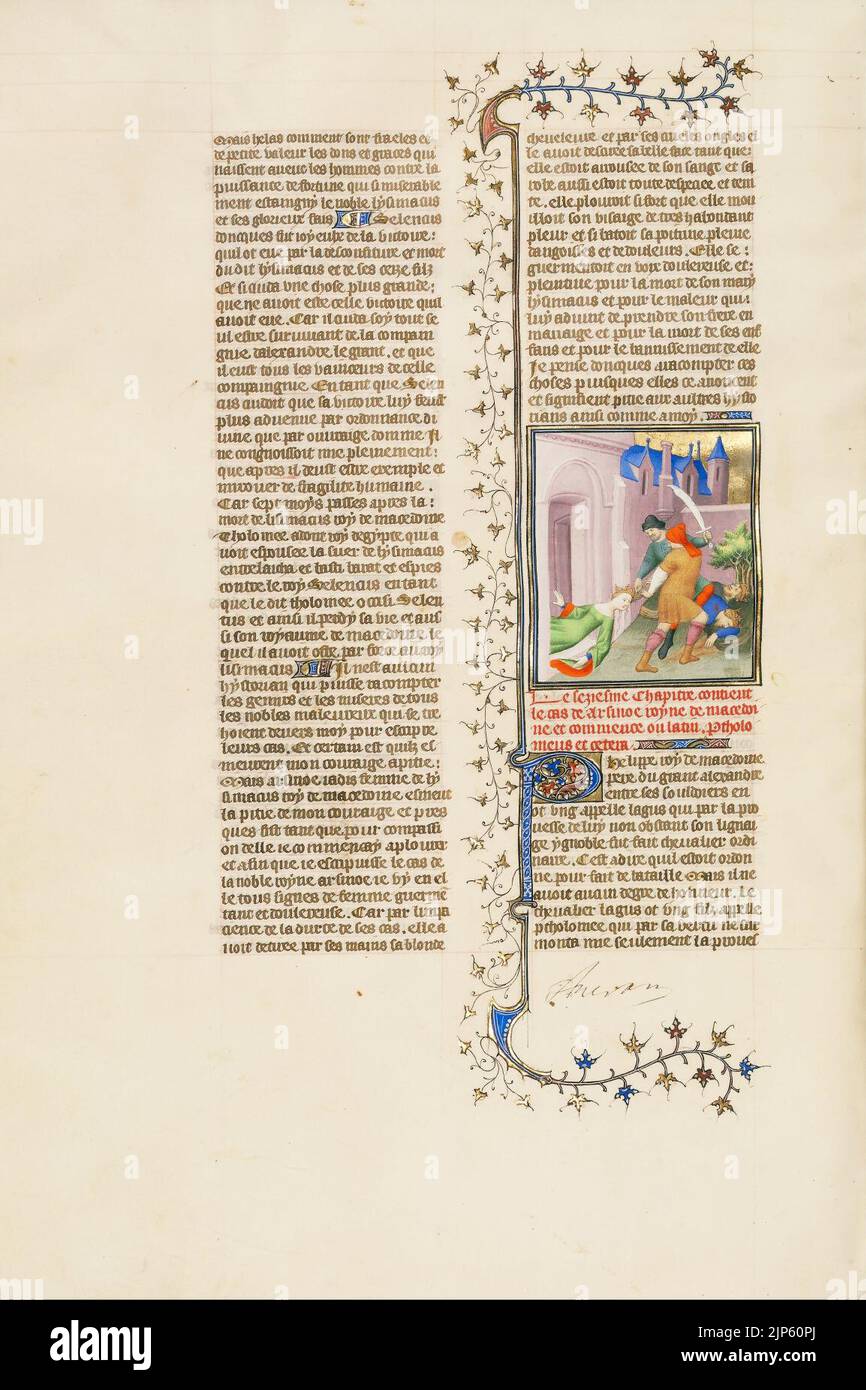 Mais helas comment sont fraeles et
de petite valeur les dons et graces qui
naissent avecq les hommes contre la
puissance de fortune qui si miserable
ment estaigny le noble lysimacus
et ses glorieux fais Selencus
doncques fut roy eureux de la victoire:
quil ot eue par la desconfiture et mort
dudit lysimacus et de ses quize filz
Et si cuida une chose plus grande:
que ne avoit este celle victoire quil
avoit eue. Car il cuida soy tout se
ul estre survivant de la compai
gnie dalexandre le grant. et que
il eust tous les vainceurs de celle
compaignie En tant que Selen
cus cuidoit que sa victoire luy feust
plus advenue par ordonnance di
vine que par ouvraige domme Il
ne congnoissoit mie pleinement:
que apres il deust estre exemple et
mirouer de fragilite humaine.
Car sept moys passes apres la:
mort de lisimacus roy de macedoine
Tholomee adont roy degypte qui a
voit espousee la suer de lysimacus
et basti barat et espies
contre le roy Selencus entant
que le dit tholomee occist Selen
cus et ainsi il perdy sa vie et aus
si son royaume de macedoine le
quel il avoit oste par force au roy
lisimacus Il nest aucun
hystorian qui puisse racompter
les gemirs et les miseres de tous
les nobles maleureux qui se tre
hoient devers moy pour escripre
leurs cas. Et certain est quilz es
meuvent mon couraige a pitie:
Mais arsinoe iadis femme de ly
simacus roy de macedoine esmeut
la pitie de mon couraige et pres
ques fist tant que pour compassi
on delle ie commencay a plourer
et afin que ie escripuisse le cas de
la noble royne arsinoe ie vy en el
le tous signes de femme guermen
tant et doulereuse. Car par limpa
cience de la durte de ses cas. elle a
voit detiree par ses mains sa blonde
cheveleure et par ses ongles el
le avoit desciree sa belle face tant que:
elle estoit arrousee de son sang et sa
robe aussi estoit toute despecee et rom
te. elle plouroit si fort que elle mou
illoit son visaige de tres habondant
pleur et si batoit sa poitrine pleine
dangoisses et de douleurs. Elle se:
guermentoit en voix doulereuse et:
pleintive pour la mort de son mary
lysimacus et pour le maleur qui:
luy advint de prendre son frere en
mariaige et pour la mort de ses enf
fans et pour le bannissement de elle
Je pense doncques a racompter ces
choses puisques elles ce
et signifient pitie aux aultres hysto
rians ainsi comme a moy.
Le seziesme Chapitre contient
le cas de Arsinoe royne de macedoi
ne et commence ou latin. Ptholo
meus et cetera
Phelipe roy de macedoine
pere du grant alexandre
entre ses souldoiers en
ot ung appelle lagus qui par la pro
uesse de luy non obstant son lignai
ge ygnoble fut fait chevalier ordi
naire. Cest a dire quil estoit ordon
ne pour fait de bataille Mais il ne
avoit aucun degre de honneur. Le
chevalier lagus ot ung filz appelle
ptholomee qui par sa vertu ne sur
monta mie seulement la prouess
alamy
Image ID: 2JP60PJ
www.alamy.com